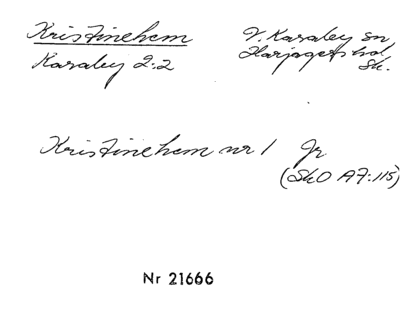 Kristinehem V. Karaby sn
Karaby 2:2 Harjagers hd
Sk.
Kristinehem nr 1 Jr
(SkO A7:115)
Nr 21666